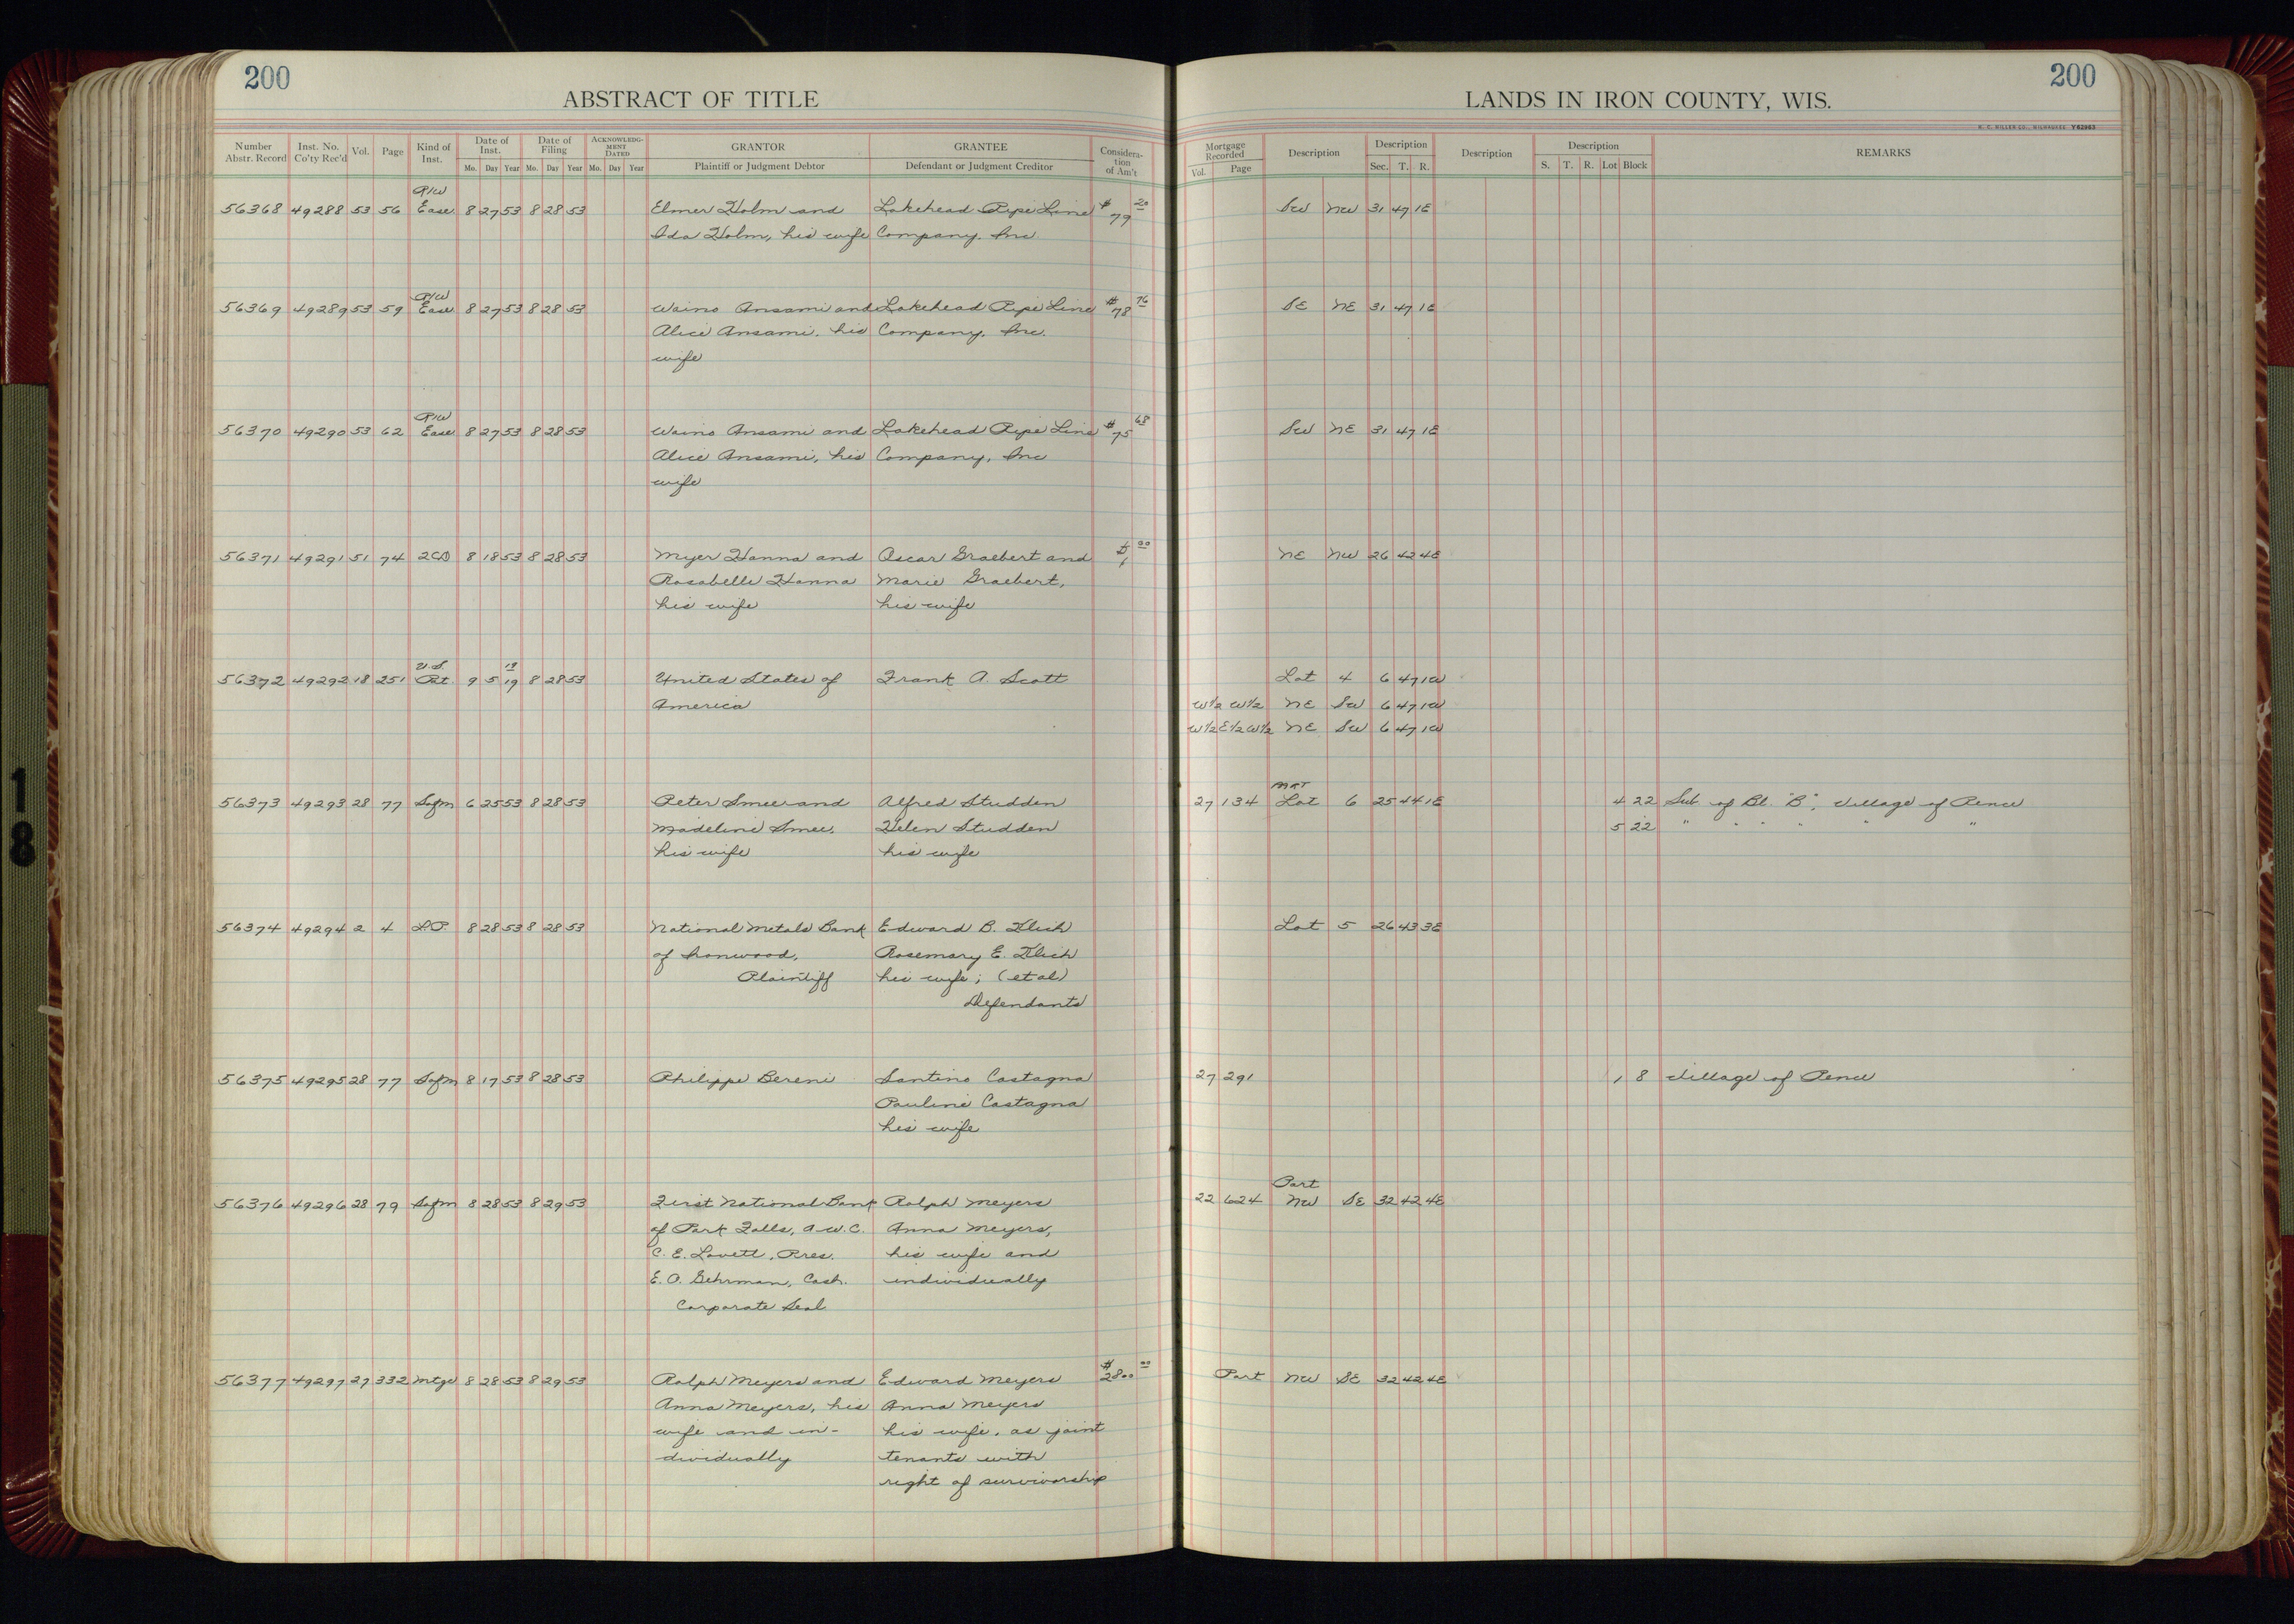 200
ABSTRACT OF TITLE
Number Abstr. Record | Inst. No. Co'ty Rec'd | Vol. | Page | Kind of Inst. | Date of Inst. Mo. Day Year | Date of Filing Mo. Day Year | ACKNOWLEDGMENT DATED Mo. Day Year | GRANTOR Plaintiff or Judgment Debtor | GRANTEE Defendant or Judgment Creditor | Consideration of Am't
200
LANDS IN IRON COUNTY, WIS.
H. C. MILLER CO., MILWAUKEE Y62983
Mortgage Recorded Vol. Page | Description | Description Sec. T. R. | Description | Description S. T. R. Lot Block | REMARKS
R/W
56368 49288 53 56 Ease 8 27 53 8 28 53 Elmer Holm and Lakehead Pipe Line $79 20 SW NW 31 47 1E
Ida Holm, his wife Company, Inc
R/W
56369 49289 53 59 Ease 8 27 53 8 28 53 Waino Ansami and Lakehead Pipe Line $78 76 SE NE 31 47 1E
Alice Ansami, his Company, Inc.
wife
R/W
56370 49290 53 62 Ease 8 27 53 8 28 53 Waino Ansami and Lakehead Pipe Line $75 68 SW NE 31 47 1E
Alice Ansami, his Company, Inc
wife
56371 49291 51 74 2CD 8 18 53 8 28 53 Myer Hanna and Oscar Graebert and $1 00 NE NW 26 42 4E
Rosabelle Hanna Marie Graebert,
his wife his wife
U.S. 19
56372 49292 18 251 Pat 9 5 19 8 28 53 United States of Frank A. Scott Lot 4 6 47 1W
America W½ W½ NE SW 6 47 1W
W½ E½ W½ NE SW 6 47 1W
56373 49293 28 77 Sofm 6 25 53 8 28 53 Peter Smee and Alfred Studden 27 134 Lot 6 25 44 1E 4 22 Sub. of Bl. "B", Village of Pence
Madeline Smee, Helen Studden 5 22 " " " " " "
his wife his wife
56374 49294 2 4 LP 8 28 53 8 28 53 National Metals Bank Edward B. Klich Lot 5 26 43 3E
of Ironwood, Rosemary E. Klich
Plaintiff his wife; (et al)
Defendants
56375 49295 28 77 Sofm 8 17 53 8 28 53 Philippe Bereni Santino Castagna 27 291 1 8 Village of Pence
Pauline Castagna
his wife
Part
56376 49296 28 79 Sofm 8 28 53 8 29 53 First National Bank Ralph Meyers 22 624 NW SE 32 42 4E
of Park Falls, a W.C. Anna Meyers,
C. E. Lovett, Pres. his wife and
E. O. Gehrman, Cash. individually
Corporate Seal
56377 49297 27 332 Mtge 8 28 53 8 29 53 Ralph Meyers and Edward Meyers $2800 00 Part NW SE 32 42 4E
Anna Meyers, his Anna Meyers
wife and in- his wife, as joint
dividually tenants with
right of survivorship
18